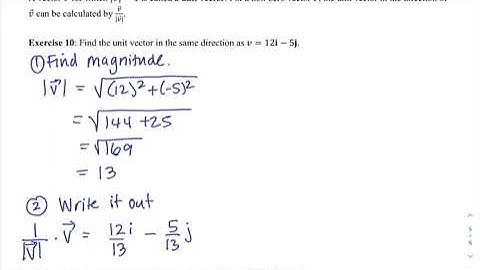 v⃗ can be calculated by v⃗/|v⃗|.
Exercise 10: Find the unit vector in the same direction as v = 12i − 5j.
① Find magnitude.
|v⃗| = √((12)² + (-5)²)
= √(144 + 25)
= √169
= 13
② Write it out
1/|v⃗| · v⃗ = 12i/13 − 5/13 j